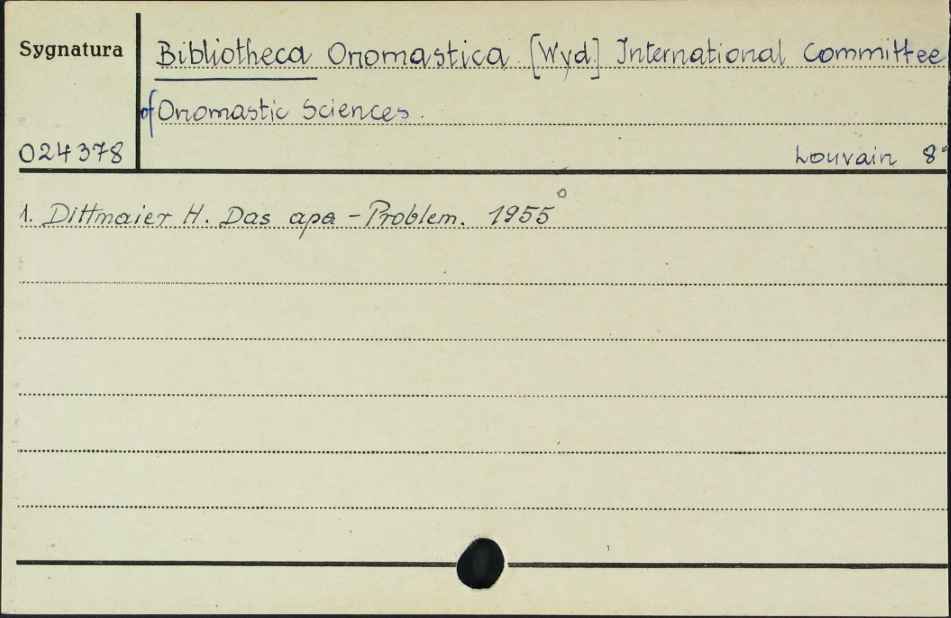 Sygnatura
Bibliotheca Onomastica [Wyd] International Committee
of Onomastic Sciences.
024378
Louvain 8°
1. Dittmaier H. Das apa - Problem. 1955°